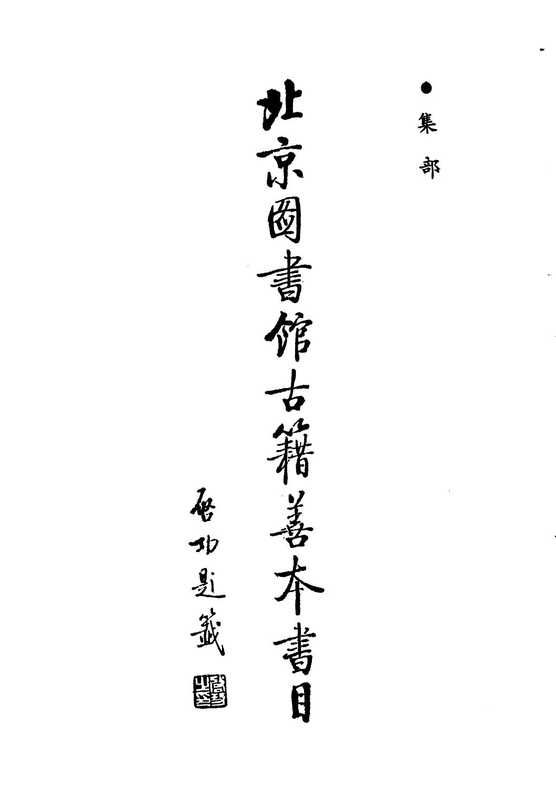 ●集部
北京圖書館古籍善本書目
啓功題籤